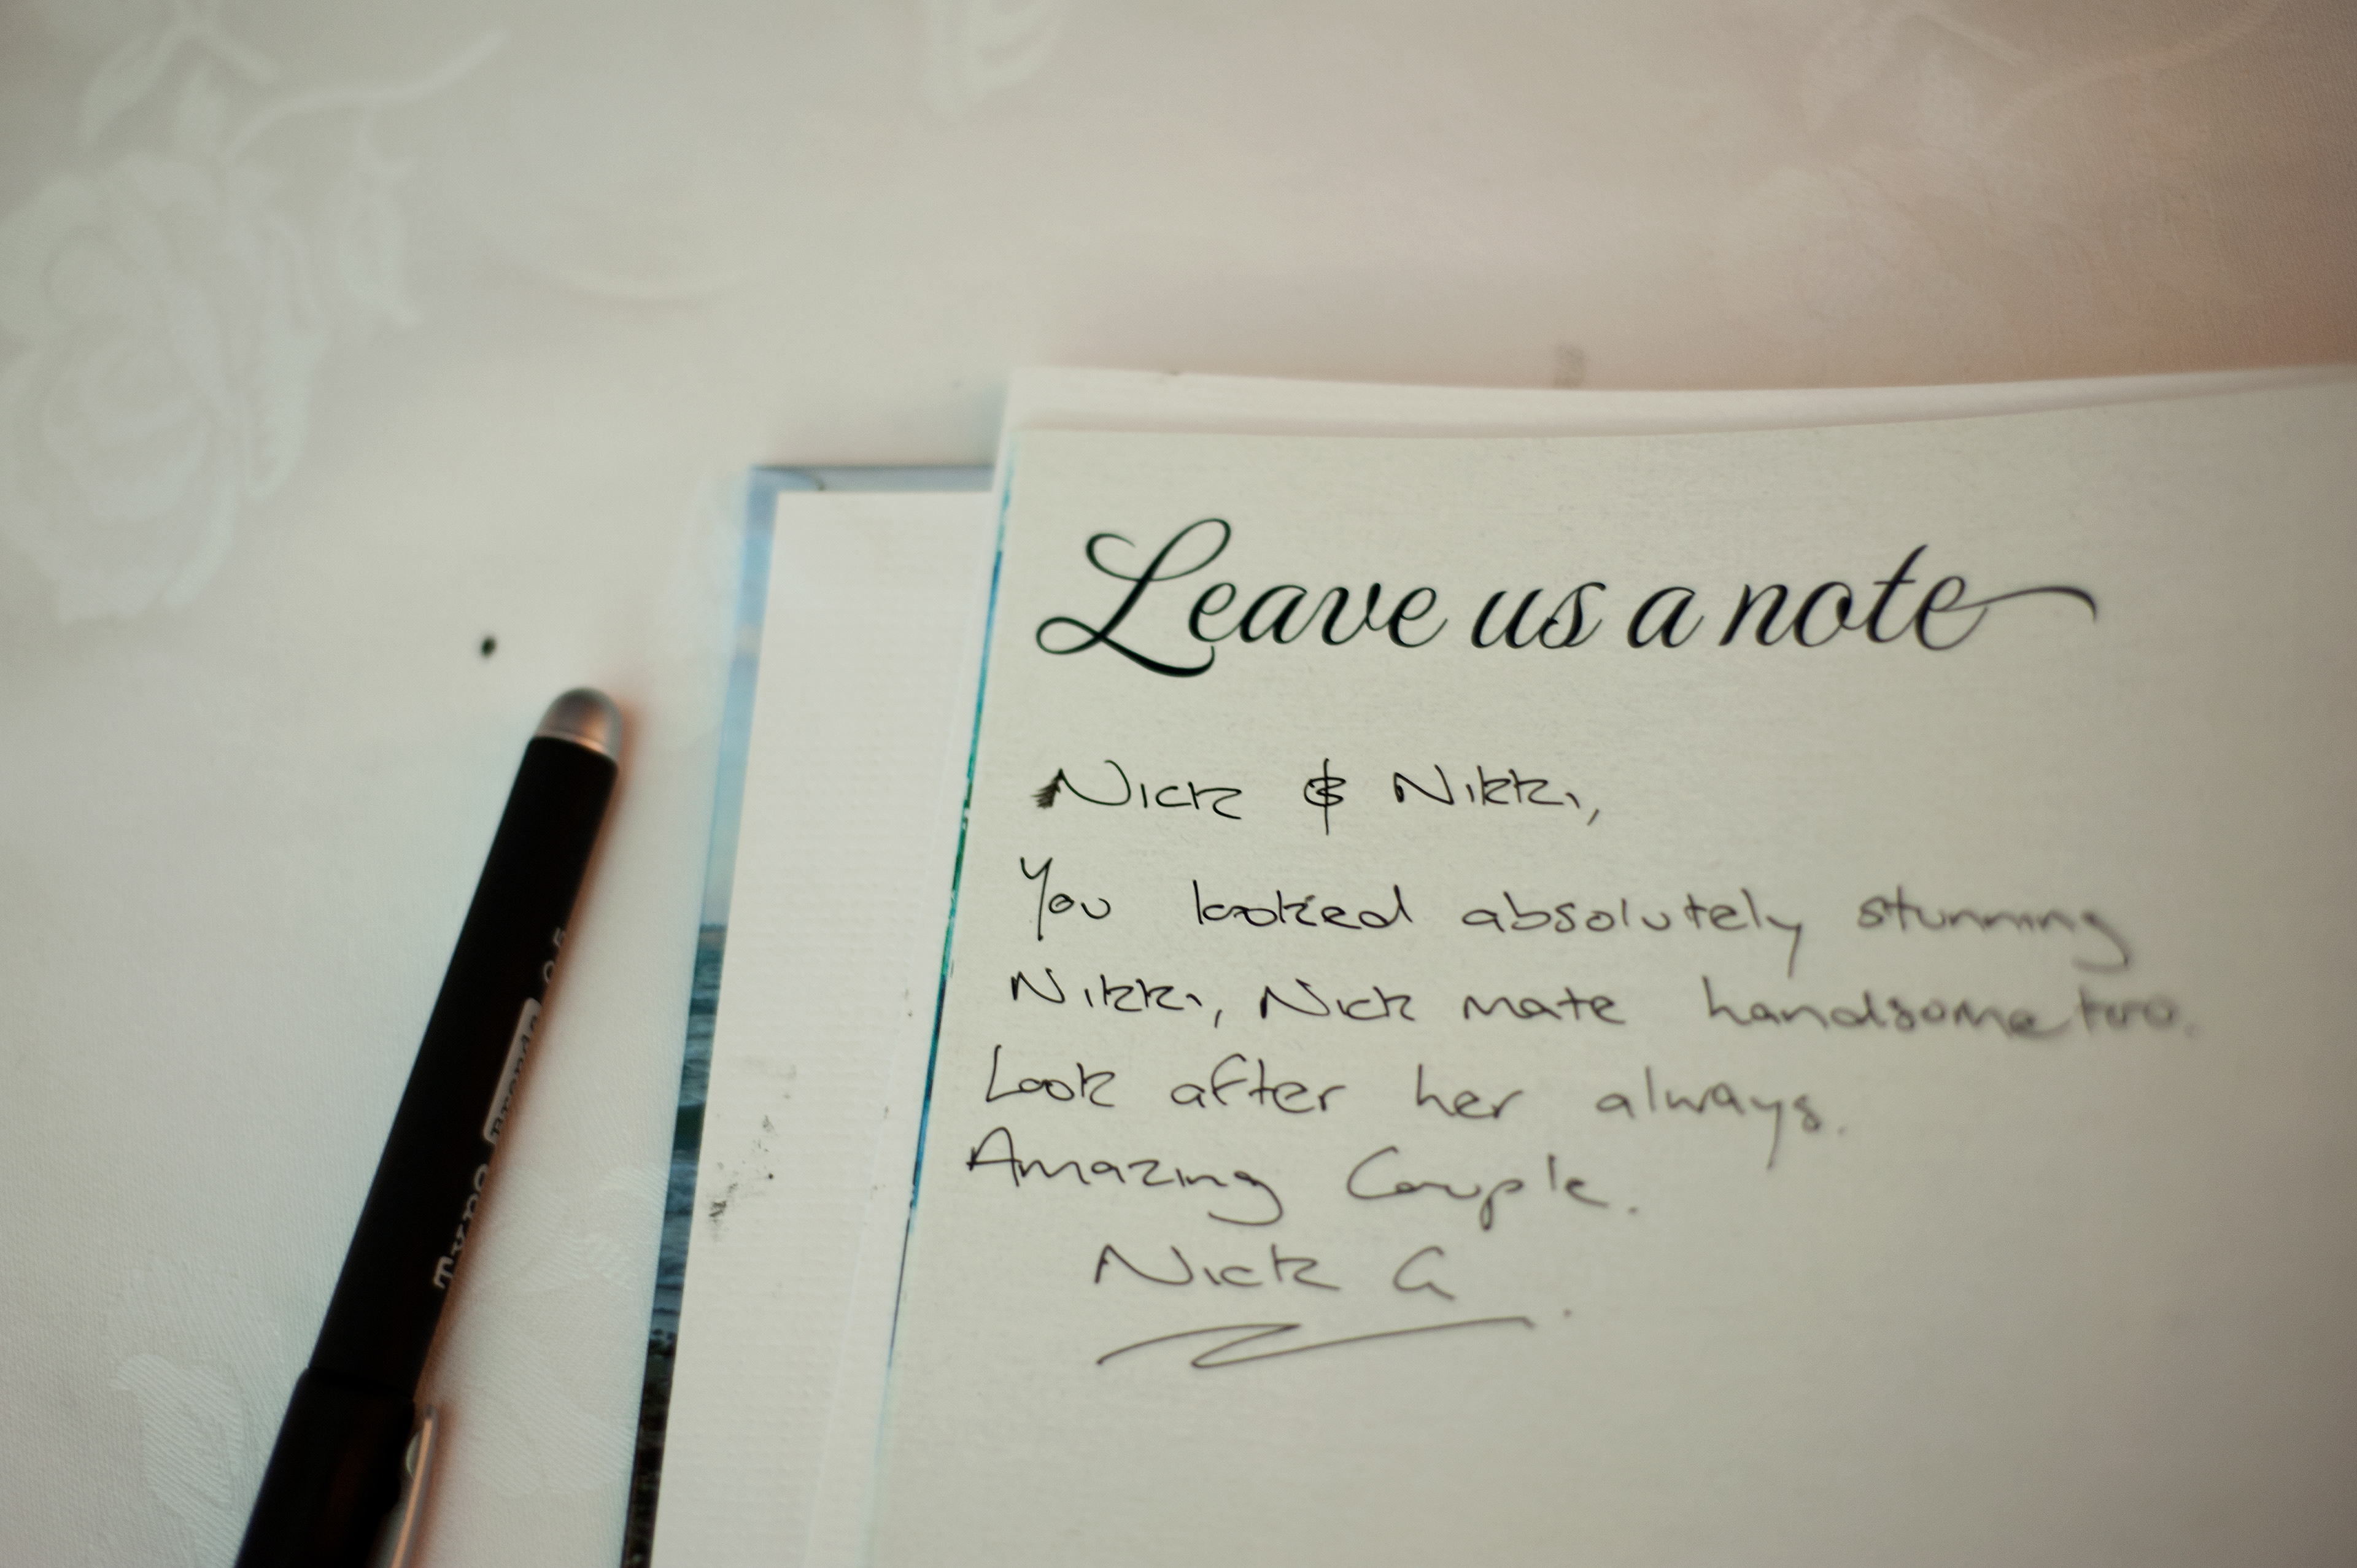 Leave us a note
Nick & Nikki,
You looked absolutely stunning
Nikki, Nick mate handsome too.
Look after her always.
Amazing Couple.
Nick G
Typo